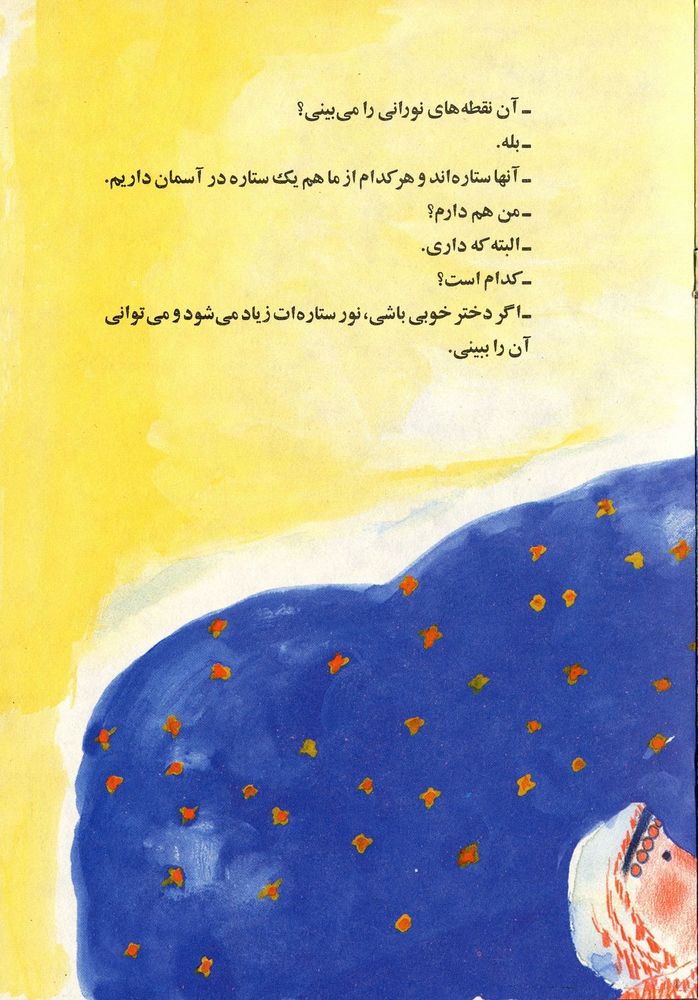 ـ آن نقطه‌های نورانی را می‌بینی؟
ـ بله.
ـ آنها ستاره‌اند و هر کدام از ما هم یک ستاره در آسمان داریم.
ـ من هم دارم؟
ـ البته که داری.
ـ کدام است؟
ـ اگر دختر خوبی باشی، نور ستاره‌ات زیاد می‌شود و می‌توانی
آن را ببینی.